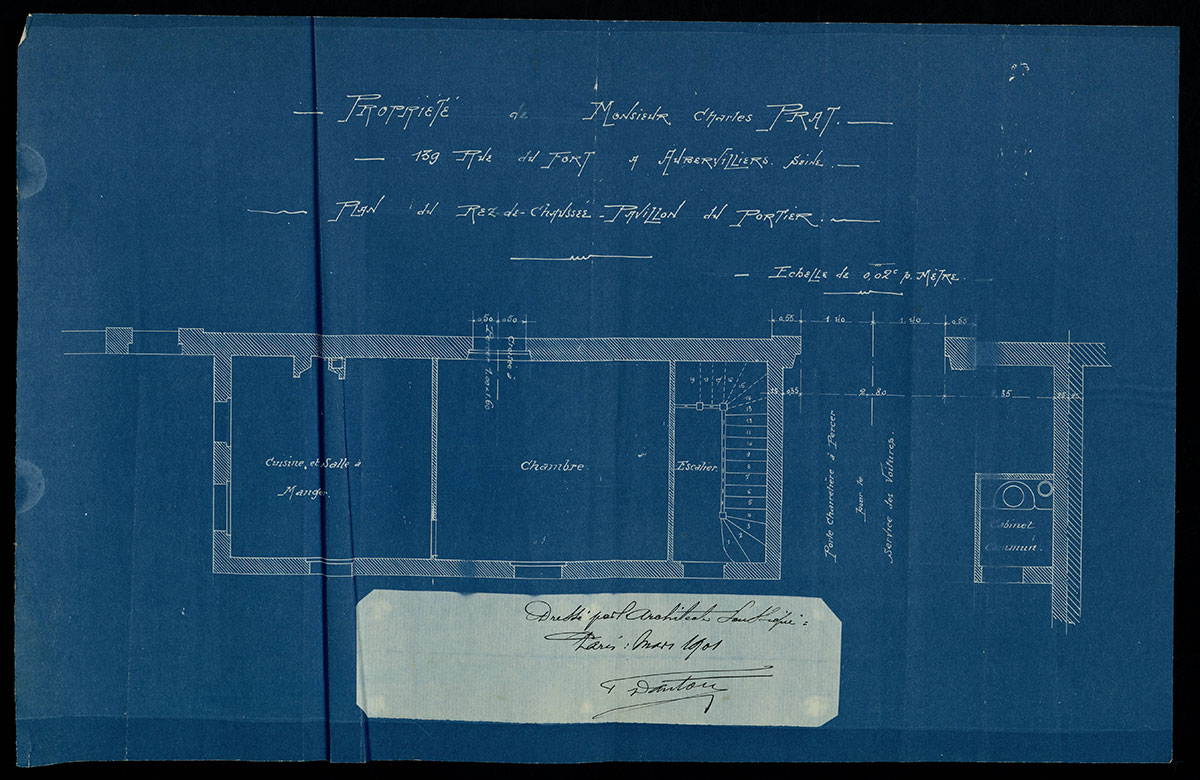 Propriété de Monsieur Charles PRAT.
139 Rue du Fort à Aubervilliers. Seine.
Plan du Rez-de-Chaussée - Pavillon du Portier.
Echelle de 0,02c p. Mètre.
0,50 0,50
0,55 1.40 1.40 0,55
Croisée à
0,35 2.80
Cuisine et Salle à
Manger.
Chambre
Escalier.
Porte Charretière à Percer
pour le
Service des Voitures.
Cabinet
Commun.
Dressé par l'Architecte Soussigné :
Paris : Mars 1901
Danton